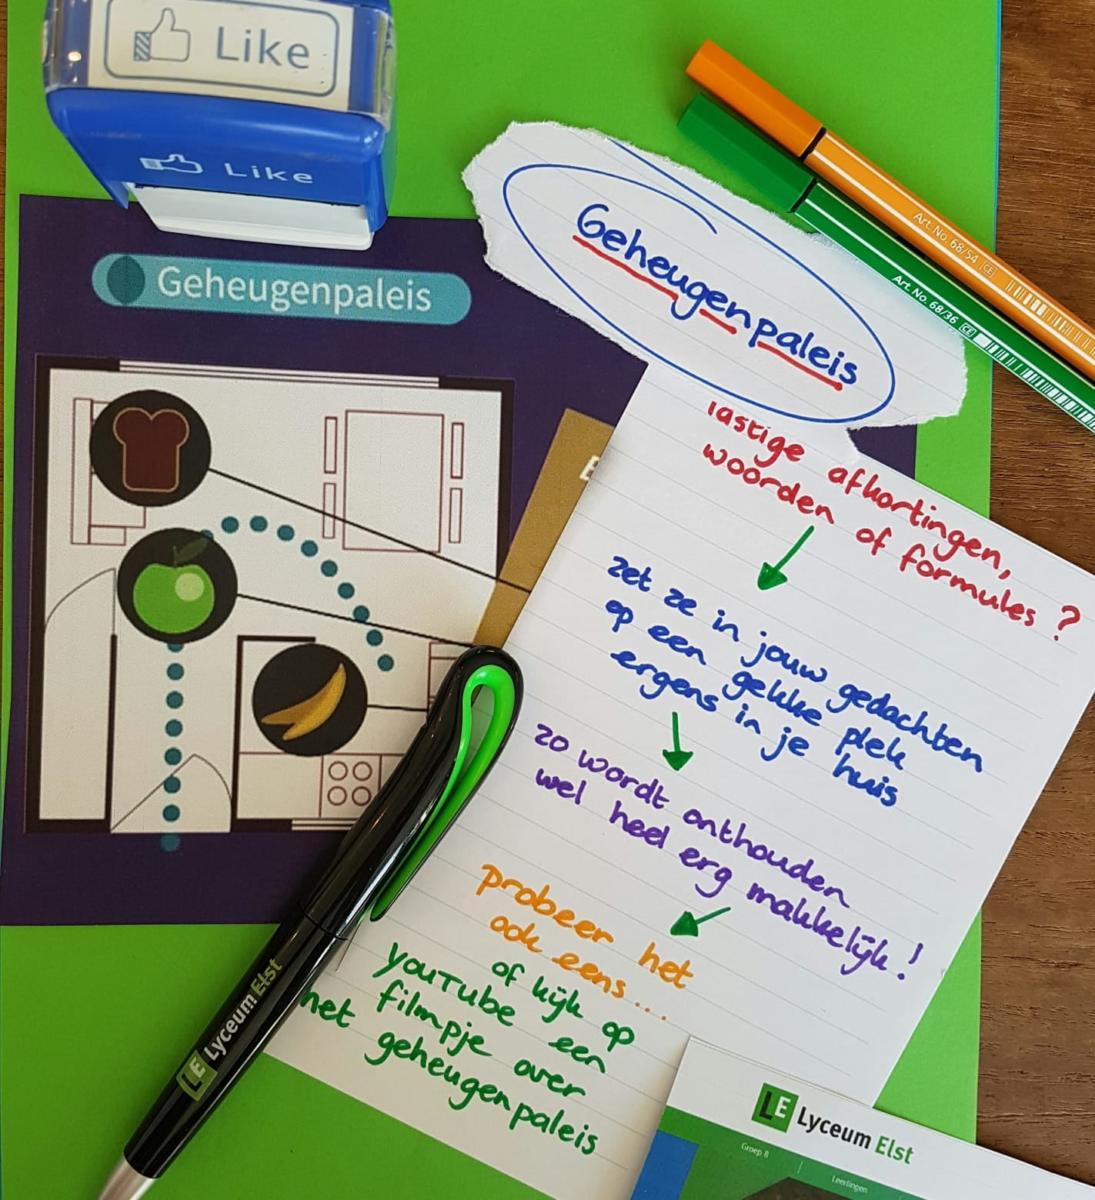 Like
Like
Geheugenpaleis
Art. No. 68/54 CE
Art. No. 68/36 CE
Geheugenpaleis
lastige afkortingen,
woorden of formules?
zet ze in jouw gedachten
op een gekke plek
ergens in je huis
zo wordt onthouden
wel heel erg makkelijk!
probeer het
ook eens...
of kijk op
YouTube een
filmpje over
het geheugenpaleis
LE Lyceum Elst
LE Lyceum Elst
Groep 8
Leerlingen